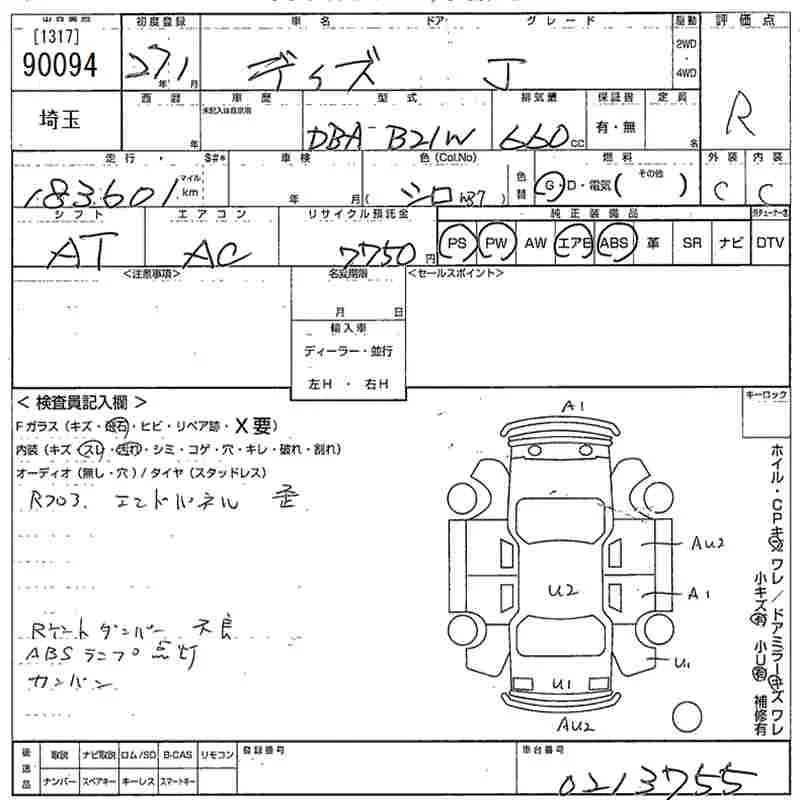 [1317]
90094
初度登録
27年1月
車名
ドア
グレード
デイズ
J
駆動
2WD
・
4WD
評価点
R
埼玉
西暦
年
車歴
未記入は自家用
型式
DBA-B21W
排気量
660cc
保証書
有・無
定員
名
走行・
$#*
183,601
マイル
km
車検
年 月
色(Col.No)
(シロ W37)
色替
燃料
G・D・電気( その他 )
外装
C
内装
C
シフト
AT
エアコン
AC
リサイクル預託金
7750円
純正装備品
PS
PW
AW
エアB
ABS
革
SR
ナビ
DTV
<注意事項>
名変期限
月 日
輸入車
ディーラー・並行
左H・右H
<セールスポイント>
<検査員記入欄>
キーロック
Fガラス(キズ・飛石・ヒビ・リペア跡・X要)
内装(キズ・スレ・汚れ・シミ・コゲ・穴・キレ・破れ・割れ)
オーディオ(無し・穴)/タイヤ(スタッドレス)
Rフロス. エンドパネル 歪
Rゲートダンパー 不良
ABSランプ点灯
カンバン
A1
AU2
A1
U2
U1
U1
AU2
ホイル・CPキズ ワレ/ドアミラーキズ ワレ
小キズ有 小U有 補修有
後送品
取説
ナビ取説
ロム/SD
B-CAS
リモコン
ナンバー
スペアキー
キーレス
スマートキー
登録番号
車台番号
0213755